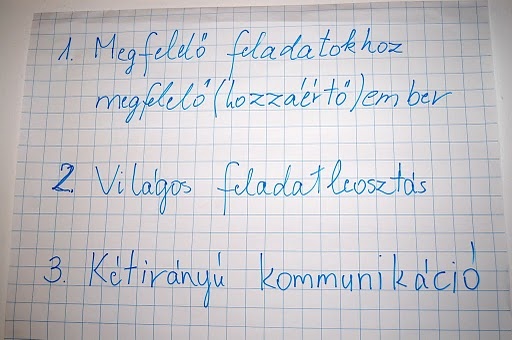 1. Megfelelő feladatokhoz
megfelelő (hozzáértő) ember
2. Világos feladatleosztás
3. Kétirányú kommunikáció